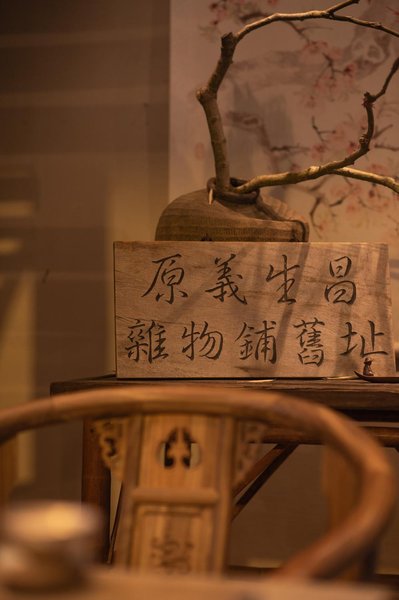 原義生昌
雜物鋪舊址